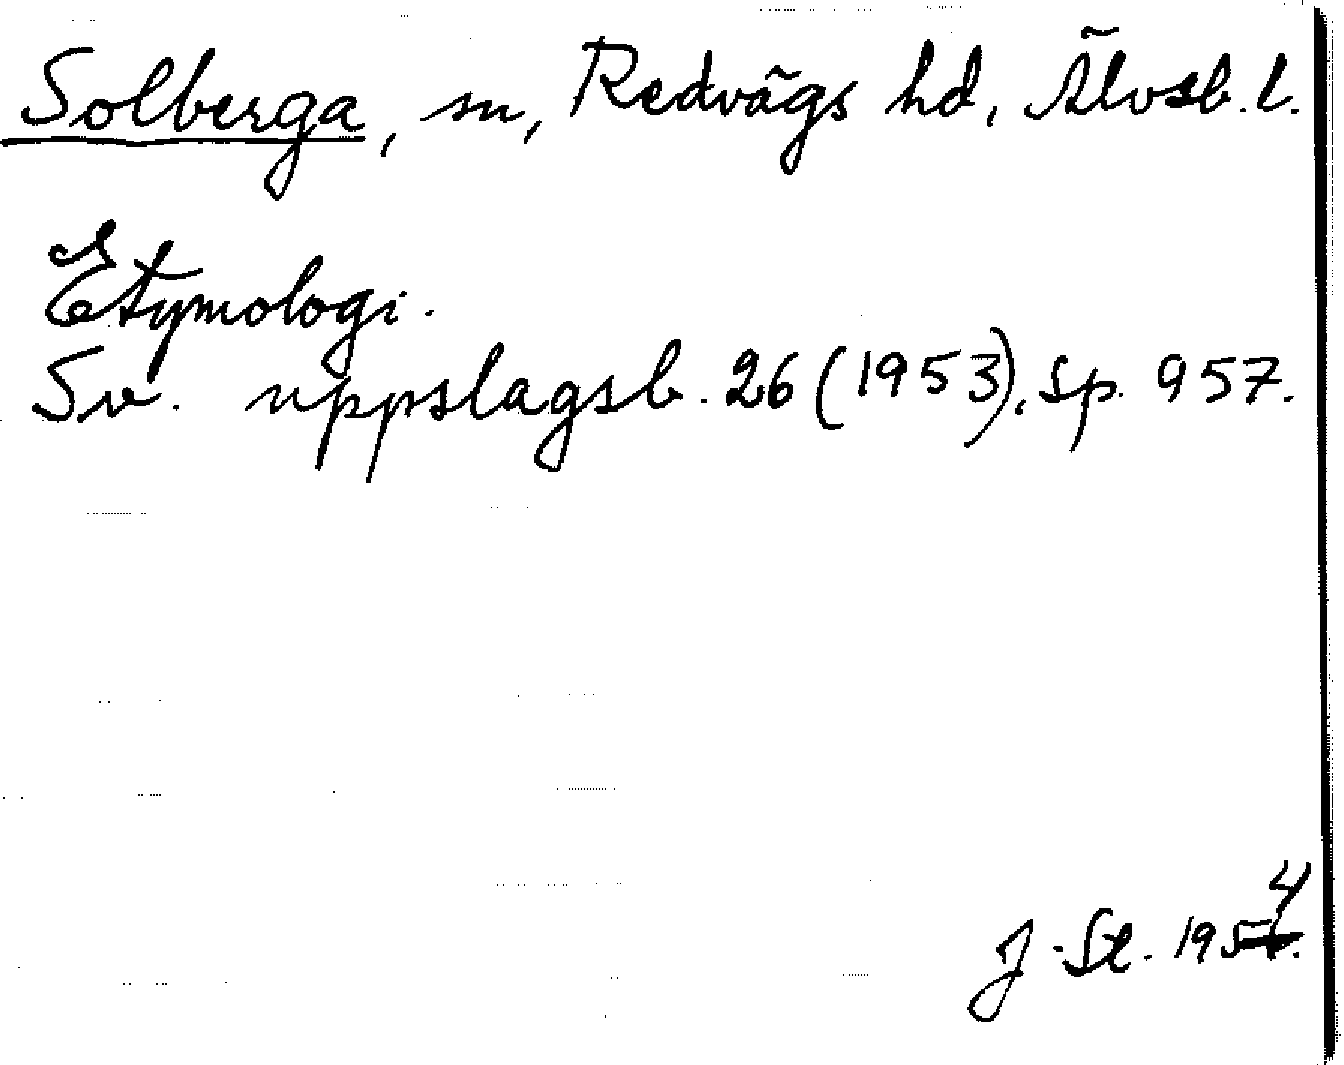 Solberga, sn, Redvägs hd, Älvsb. l.
Etymologi.
Sv. uppslagsb. 26 (1953), sp. 957.
J. St. 1954.